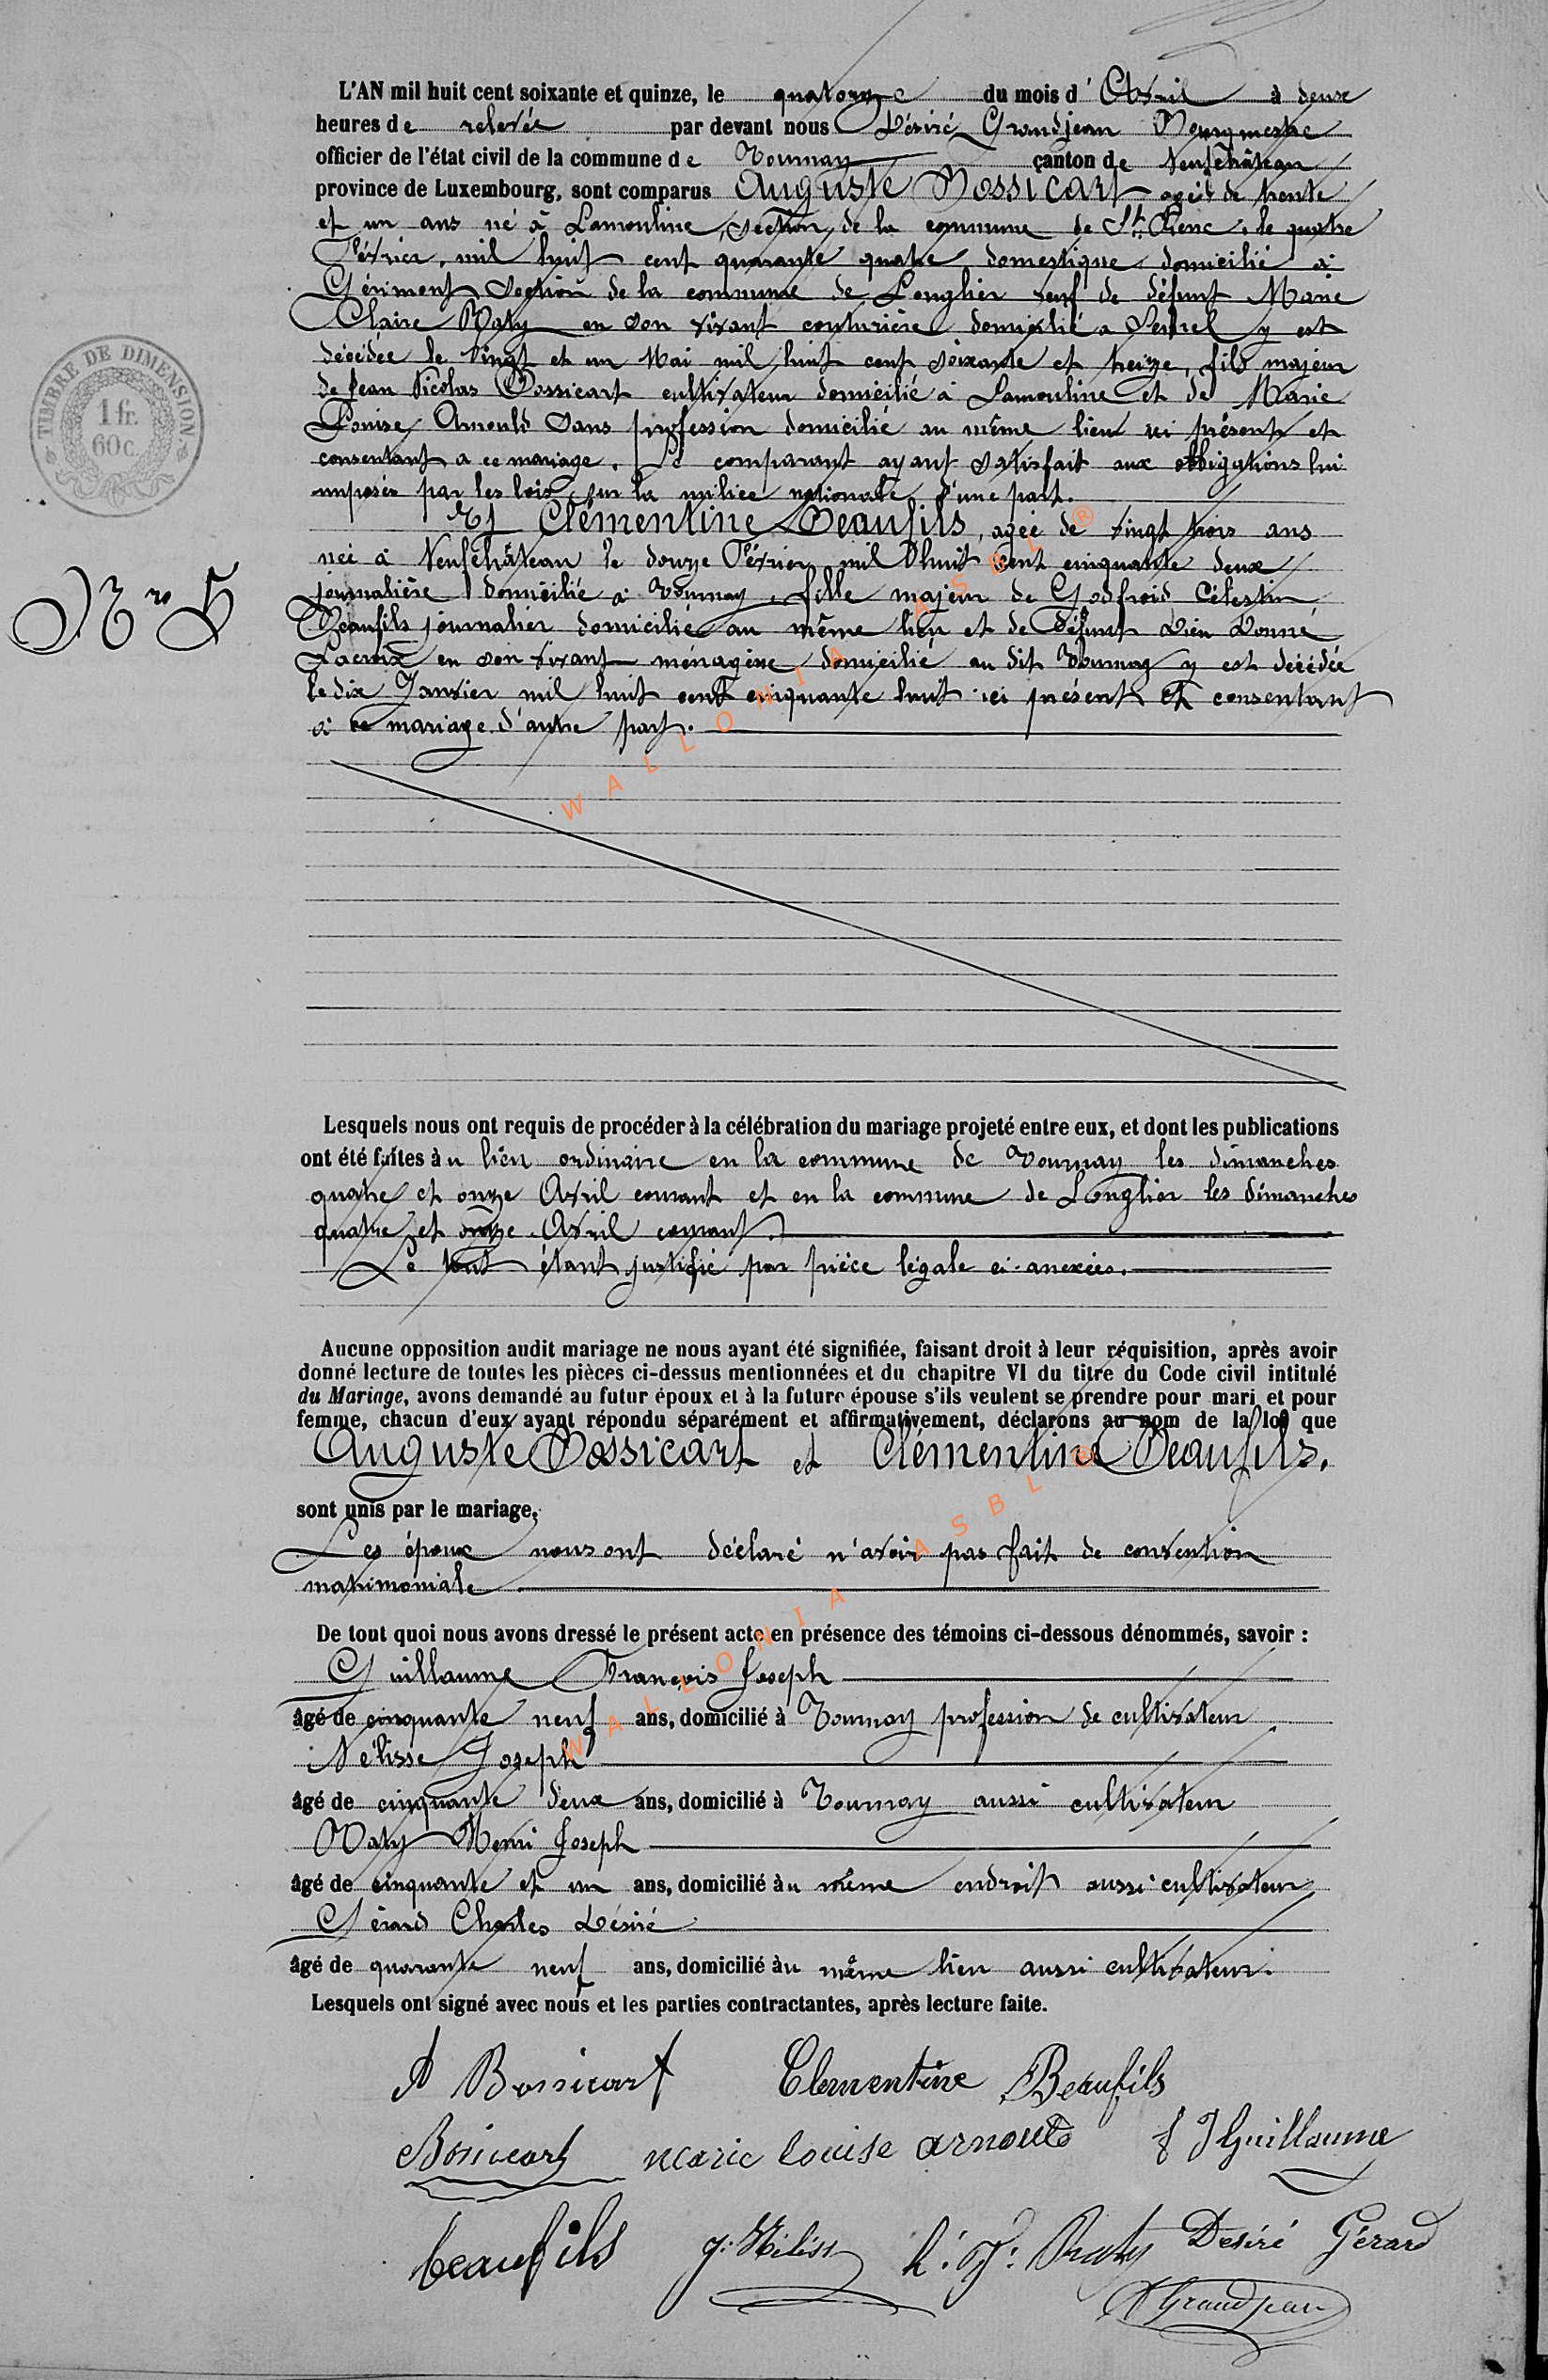 L'AN mil huit cent soixante et quinze, le quatorze du mois d'Avril à deux
heures de relevée par devant nous Désiré Grandjean Bourgmestre
officier de l'état civil de la commune de Tournay canton de Neufchâteau
province de Luxembourg, sont comparus Auguste Bossicart agés de trente
et un ans né à Lamouline, section de la commune de St Pierre, le quatre
Février, mil huit cent quarante quatre domestique domicilié à
Gérimont section de la commune de Longlier veuf de défunt Marie
Claire Baty en son vivant couturière domicilié a y est
décédée le vingt et un Mai mil huit cent soixante et treize, fils majeur
de Jean Nicolas Bossicart cultivateur domicilié à Lamouline et de Marie
Louise Arnould sans profession domicilié au même lieu ici présents et
consentant a ce mariage. Le comparant ayant satisfait aux obligations lui
imposés par les lois sur la milice nationale d'une part.
Et Clémentine Beaufils, agée de vingt trois ans
née à Neufchâteau le douze Février mil huit cent cinquante deux
journalière domicilié à Tournay, fille majeur de Godfroid Célestin
Beaufils journalier domicilié au même lieu et de défunt Dieu Donné
Lacroix en son vivant ménagère domicilié au dit Tournay y est décédée
le dix Janvier mil huit cent cinquante huit ici présent et consentant
à ce mariage d'autre part.
Nro 5
TIMBRE DE DIMENSION.
1 fr.
60 c.
WALLONIA ASBL ®
Lesquels nous ont requis de procéder à la célébration du mariage projeté entre eux, et dont les publications
ont été faites au lieu ordinaire en la commune de Tournay les dimanches
quatre et onze Avril courant et en la commune de Longlier les dimanches
quatre et onze Avril courant.
Le tout étant justifié par pièce légale ci-anexées.
Aucune opposition audit mariage ne nous ayant été signifiée, faisant droit à leur réquisition, après avoir
donné lecture de toutes les pièces ci-dessus mentionnées et du chapitre VI du titre du Code civil intitulé
du Mariage, avons demandé au futur époux et à la future épouse s'ils veulent se prendre pour mari et pour
femme, chacun d'eux ayant répondu séparément et affirmativement, déclarons au nom de la loi que
Auguste Bossicart et Clémentine Beaufils.
sont unis par le mariage.
Les époux nous ont déclaré n'avoir pas fait de convention
matrimoniale
WALLONIA ASBL ®
De tout quoi nous avons dressé le présent acte en présence des témoins ci-dessous dénommés, savoir :
Guillaume François Joseph
âgé de cinquante neuf ans, domicilié à Tournay profession de cultivateur
Nélisse Joseph
âgé de cinquante deux ans, domicilié à Tournay aussi cultivateur
Baty Henri Joseph
âgé de cinquante et un ans, domicilié au même endroit aussi cultivateur
Gérard Charles Désiré
âgé de quarante neuf ans, domicilié au même lieu aussi cultivateur.
Lesquels ont signé avec nous et les parties contractantes, après lecture faite.
A Bossicart Clementine Beaufils
Bossicart marie louise arnould f J Guillaume
beaufils j: Néliss h. J: Baty Desiré Gérard
D Grandjean